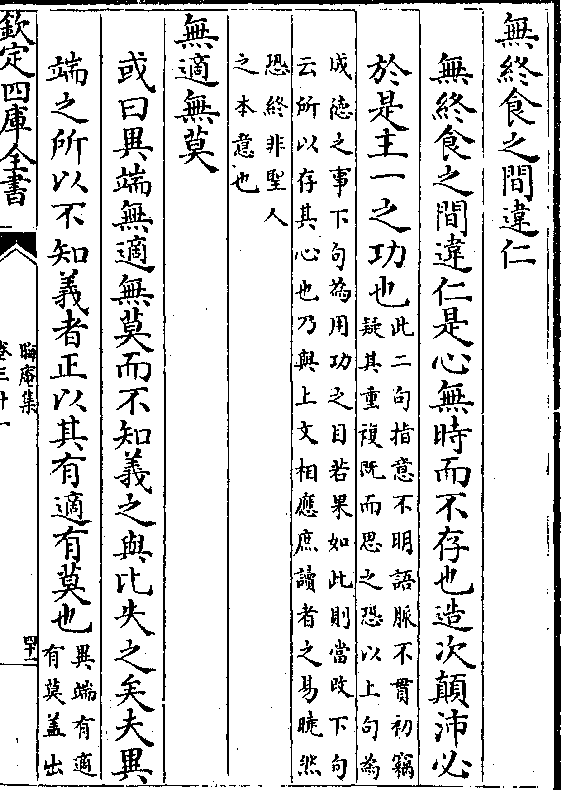 無終食之間違仁
無終食之間違仁是心無時而不存也造次顛沛必
於是主一之功也此二句指意不明語脈不貫初竊
疑其重複既而思之恐以上句為
成德之事下句為用功之目若果如此則當改下句
云所以存其心也乃與上文相應庶讀者之易曉然
恐終非聖人
之本意也
無適無莫
或曰異端無適無莫而不知義之與比失之矣夫異
端之所以不知義者正以其有適有莫也異端有適
有莫盖出
欽定四庫全書
晦庵集
卷三十一